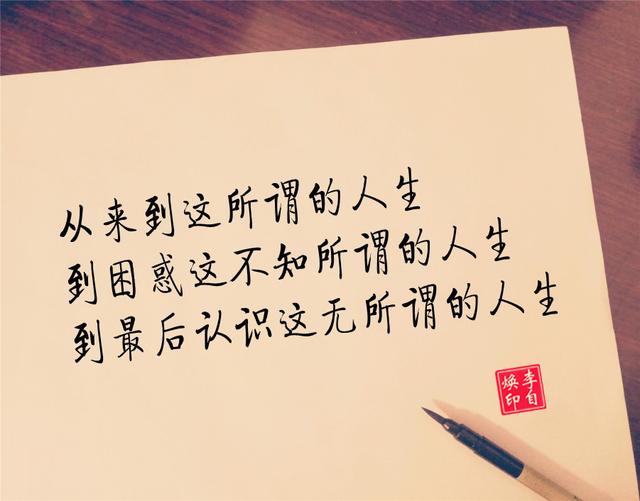 从来到这所谓的人生
到困惑这不知所谓的人生
到最后认识这无所谓的人生
李自
焕印